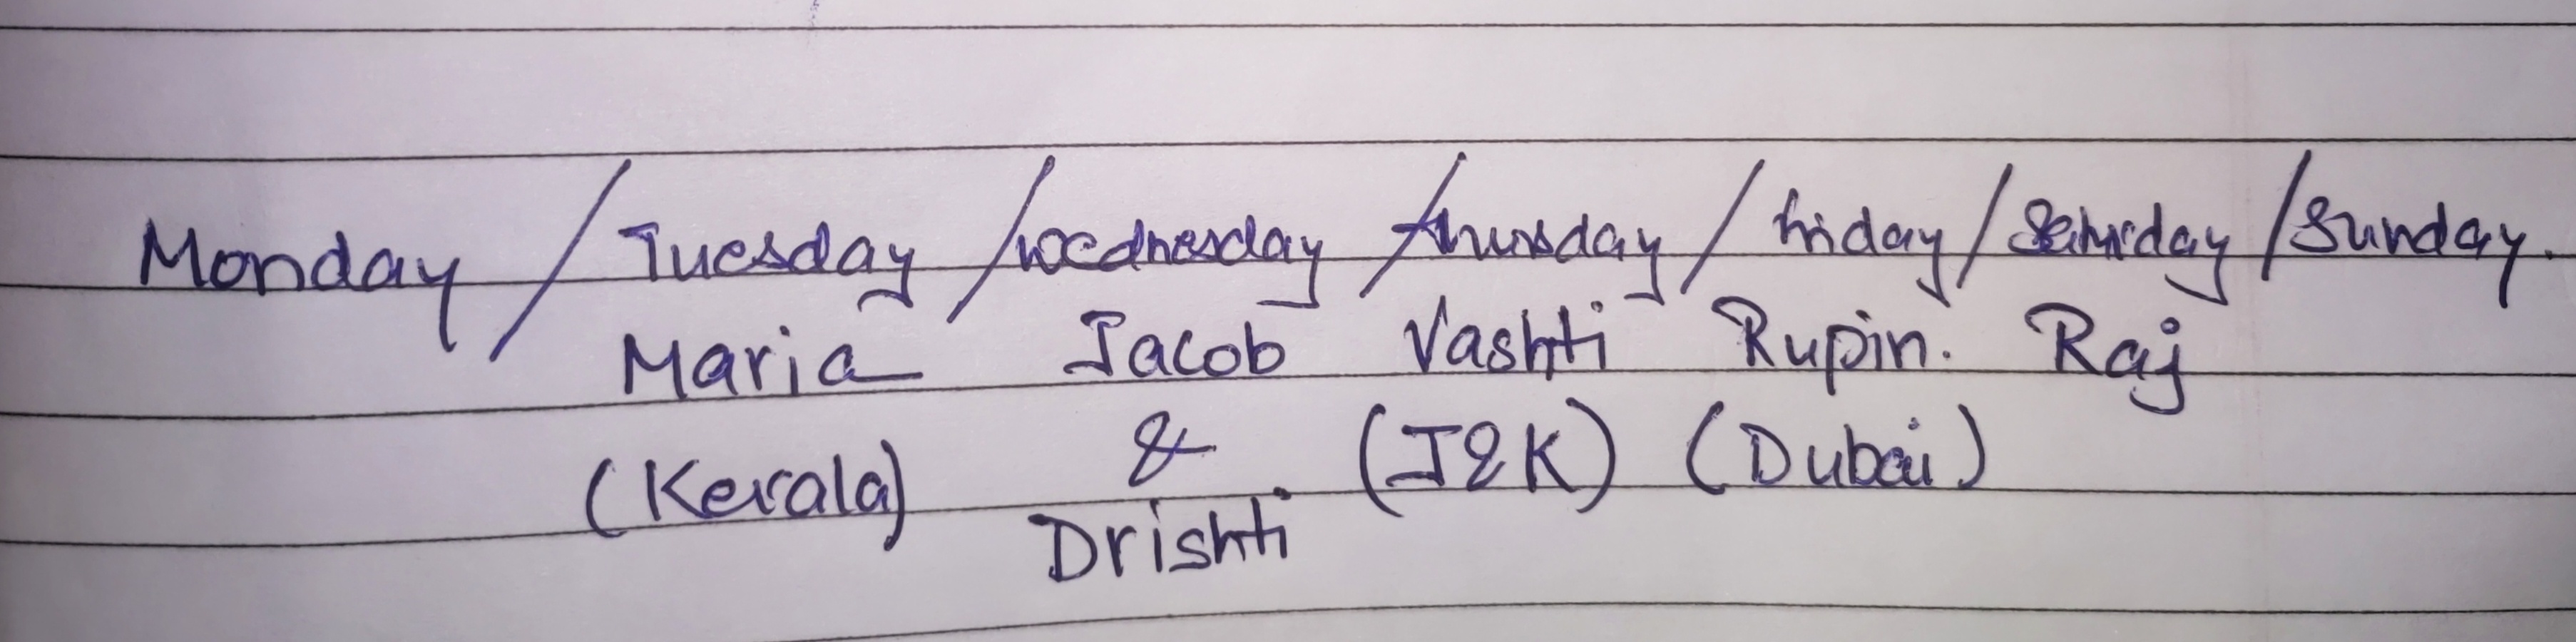 Monday / Tuesday / wednesday / thursday / friday / Saturday / Sunday.
Maria Jacob Vashti Rupin. Raj
(Kerala) & (J&K) (Dubai)
Drishti